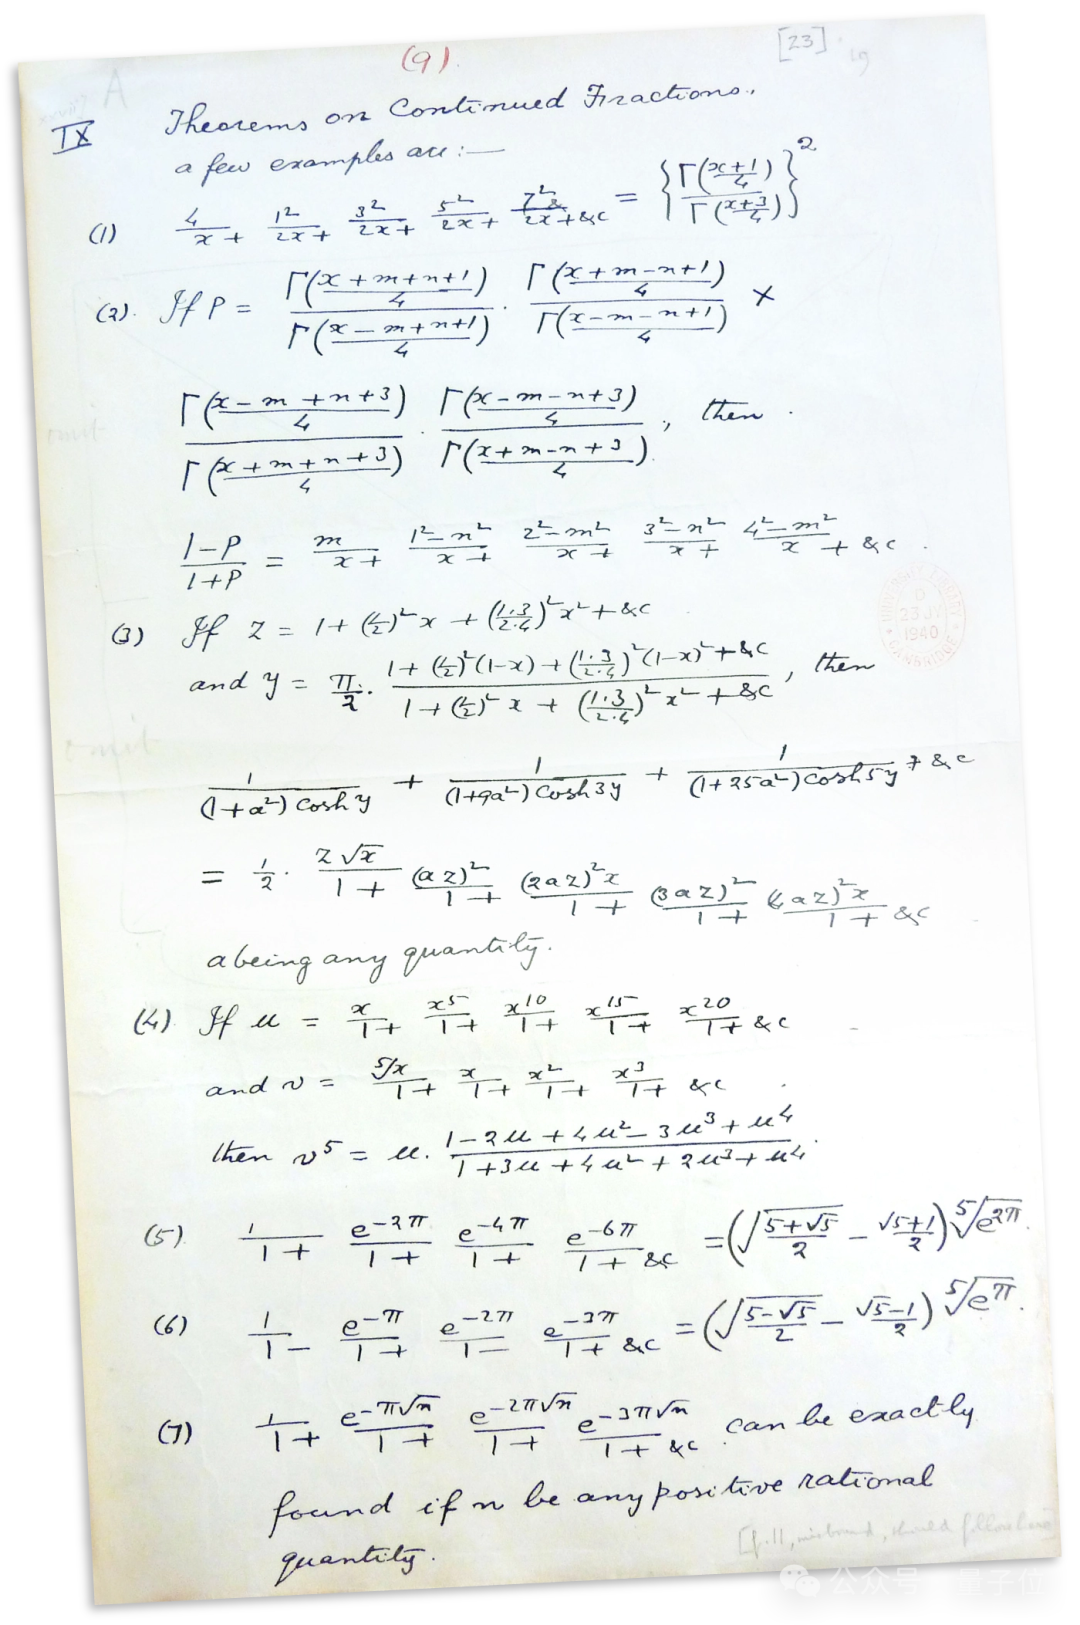 (9).
[23]
A
IX
Theorems on Continued Fractions.
a few examples are :—
(1) 4/x + 1²/2x + 3²/2x + 5²/2x + 7²/2x + &c = {Γ((x+1)/4) / Γ((x+3)/4)}²
(2). If P = Γ((x+m+n+1)/4) / Γ((x-m+n+1)/4) · Γ((x+m-n+1)/4) / Γ((x-m-n+1)/4) ×
Γ((x-m+n+3)/4) / Γ((x+m+n+3)/4) · Γ((x-m-n+3)/4) / Γ((x+m-n+3)/4), then
omit
(1-P)/(1+P) = m/x + (1²-n²)/x + (2²-m²)/x + (3²-n²)/x + (4²-m²)/x + &c.
UNIVERSITY LIBRARY
23 JY
1940
CAMBRIDGE
(3) If z = 1 + (1/2)²x + (1·3/2·4)²x² + &c
and y = π/2 · (1 + (1/2)²(1-x) + (1·3/2·4)²(1-x)² + &c) / (1 + (1/2)²x + (1·3/2·4)²x² + &c), then
omit
1/((1+a²) cosh y) + 1/((1+9a²) cosh 3y) + 1/((1+25a²) cosh 5y) + &c
= 1/2 · z√x/1 + (az)²/1 + (2az)²x/1 + (3az)²/1 + (4az)²x/1 + &c
a being any quantity.
(4) If u = x/1 + x⁵/1 + x¹⁰/1 + x¹⁵/1 + x²⁰/1 + &c
and v = ⁵√x/1 + x/1 + x²/1 + x³/1 + &c
then v⁵ = u · (1-2u+4u²-3u³+u⁴)/(1+3u+4u²+2u³+u⁴).
(5) 1/1 + e^(-2π)/1 + e^(-4π)/1 + e^(-6π)/1 + &c = (√((5+√5)/2) - (√5+1)/2) ⁵√(e^(2π)).
(6) 1/1 - e^(-π)/1 + e^(-2π)/1 - e^(-3π)/1 + &c = (√((5-√5)/2) - (√5-1)/2) ⁵√(e^π).
(7) 1/1 + e^(-π√n)/1 + e^(-2π√n)/1 + e^(-3π√n)/1 + &c can be exactly
found if n be any positive rational
quantity.
[f.11, misbound, should follow here]
公众号 量子位